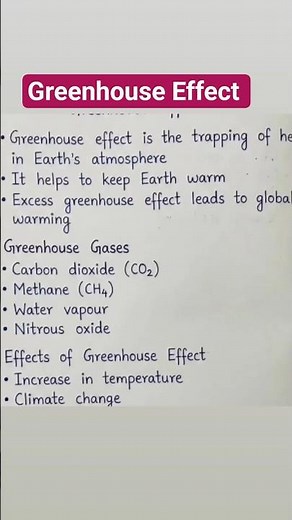 Greenhouse Effect
• Greenhouse effect is the trapping of he
in Earth's atmosphere
• It helps to keep Earth warm
• Excess greenhouse effect leads to global
warming
Greenhouse Gases
• Carbon dioxide (CO₂)
• Methane (CH₄)
• Water vapour
• Nitrous oxide
Effects of Greenhouse Effect
• Increase in temperature
• Climate change